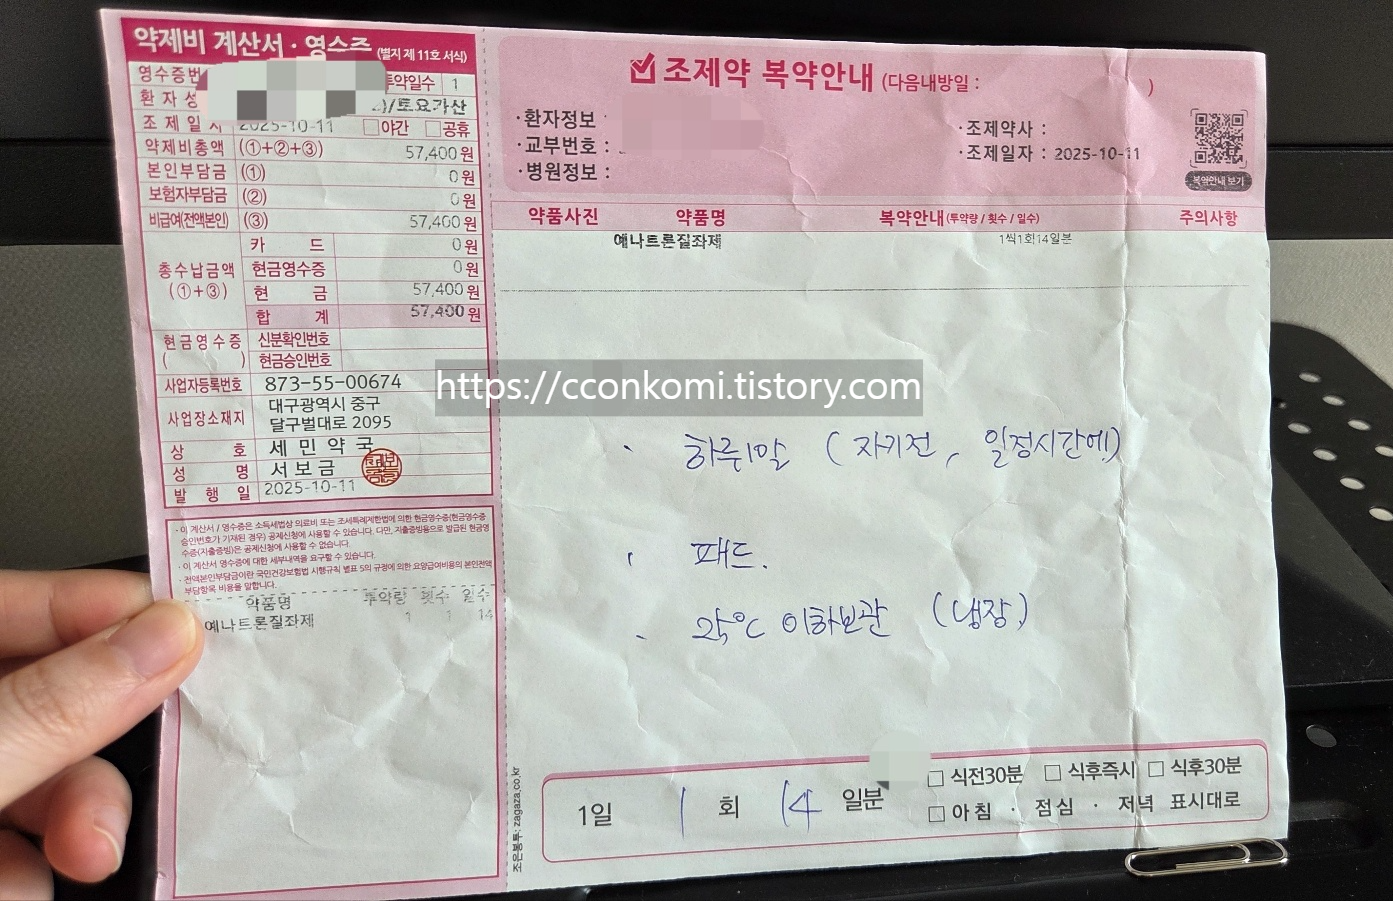 약제비 계산서 · 영수증 (별지 제 11호 서식)
영수증번
투약일수 1
환 자 성
)/토요가산
조 제 일 자 2025-10-11 □야간 □공휴
약제비총액 (①+②+③) 57,400 원
본인부담금 (①) 0 원
보험자부담금 (②) 0 원
비급여(전액본인) (③) 57,400 원
총수납금액 (①+③)
카 드 0 원
현금영수증 0 원
현 금 57,400 원
합 계 57,400 원
현금영수증 ( )
신분확인번호
현금승인번호
사업자등록번호 873-55-00674
사업장소재지 대구광역시 중구
달구벌대로 2095
상 호 세 민 약 국
성 명 서 보 금
발 행 일 2025-10-11
· 이 계산서 / 영수증은 소득세법상 의료비 또는 조세특례제한법에 의한 현금영수증(현금영수증
승인번호가 기재된 경우) 공제신청에 사용할 수 있습니다. 다만, 지출증빙용으로 발급된 현금영
수증(지출증빙)은 공제신청에 사용할 수 없습니다.
· 이 계산서 영수증에 대한 세부내역을 요구할 수 있습니다.
· 전액본인부담금이란 국민건강보험법 시행규칙 별표 5의 규정에 의한 요양급여비용의 본인전액
부담항목 비용을 말합니다.
약품명 투약량 횟수 일수
예나트론질좌제 1 1 14
조제약 복약안내 (다음내방일 : )
· 환자정보
· 교부번호 :
· 병원정보 :
· 조제약사 :
· 조제일자 : 2025-10-11
복약안내 보기
약품사진 약품명 복약안내 (투약량 / 횟수 / 일수) 주의사항
예나트론질좌제 1씩1회14일분
https://cconkomi.tistory.com
· 하루1알 (자기전, 일정시간에)
· 패드.
· 25℃ 이하보관 (냉장)
1일 1 회 14 일분
□ 식전30분 □ 식후즉시 □ 식후30분
□ 아침 · 점심 · 저녁 표시대로
조은봉투: zagaza.co.kr